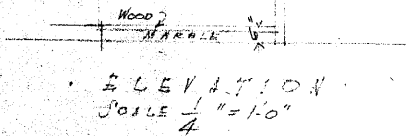 WOOD
MARBLE 6"
ELEVATION
SCALE 1/4" = 1'-0"